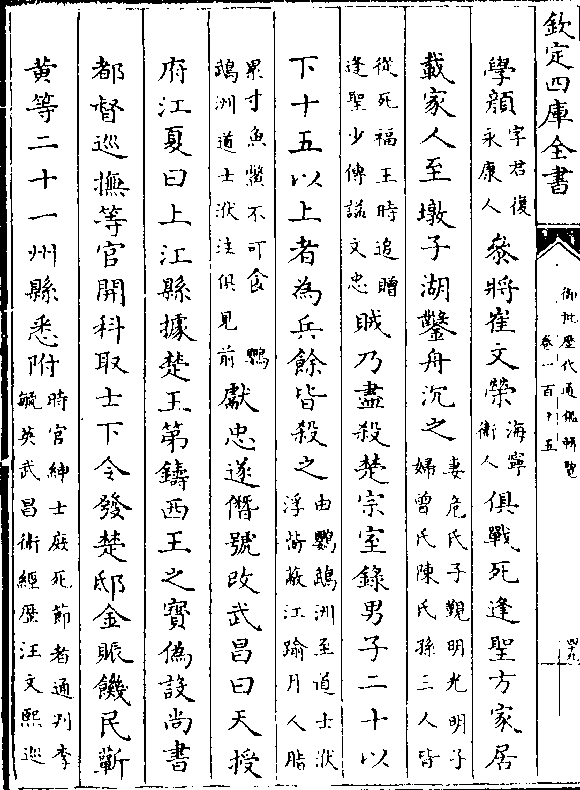 欽定四庫全書
御批歷代通鑑輯覽
卷一百十五
四十九
學顏字君復永康人參將崔文榮海寧衛人俱戰死逢聖方家居
載家人至墩子湖鑿舟沉之妻危氏子覲明光明子婦曾氏陳氏孫三人皆
從死福王時追贈逢聖少傅諡文忠賊乃盡殺楚宗室錄男子二十以
下十五以上者為兵餘皆殺之由鸚鵡洲至道士洑浮胔蔽江踰月人脂
累寸魚鱉不可食鸚鵡洲道士洑注俱見前獻忠遂僭號改武昌曰天授
府江夏曰上江縣據楚王第鑄西王之寶偽設尚書
都督巡撫等官開科取士下令發楚邸金賑饑民蘄
黃等二十一州縣悉附時官紳士庶死節者通判李毓英武昌衛經歷汪文熙巡